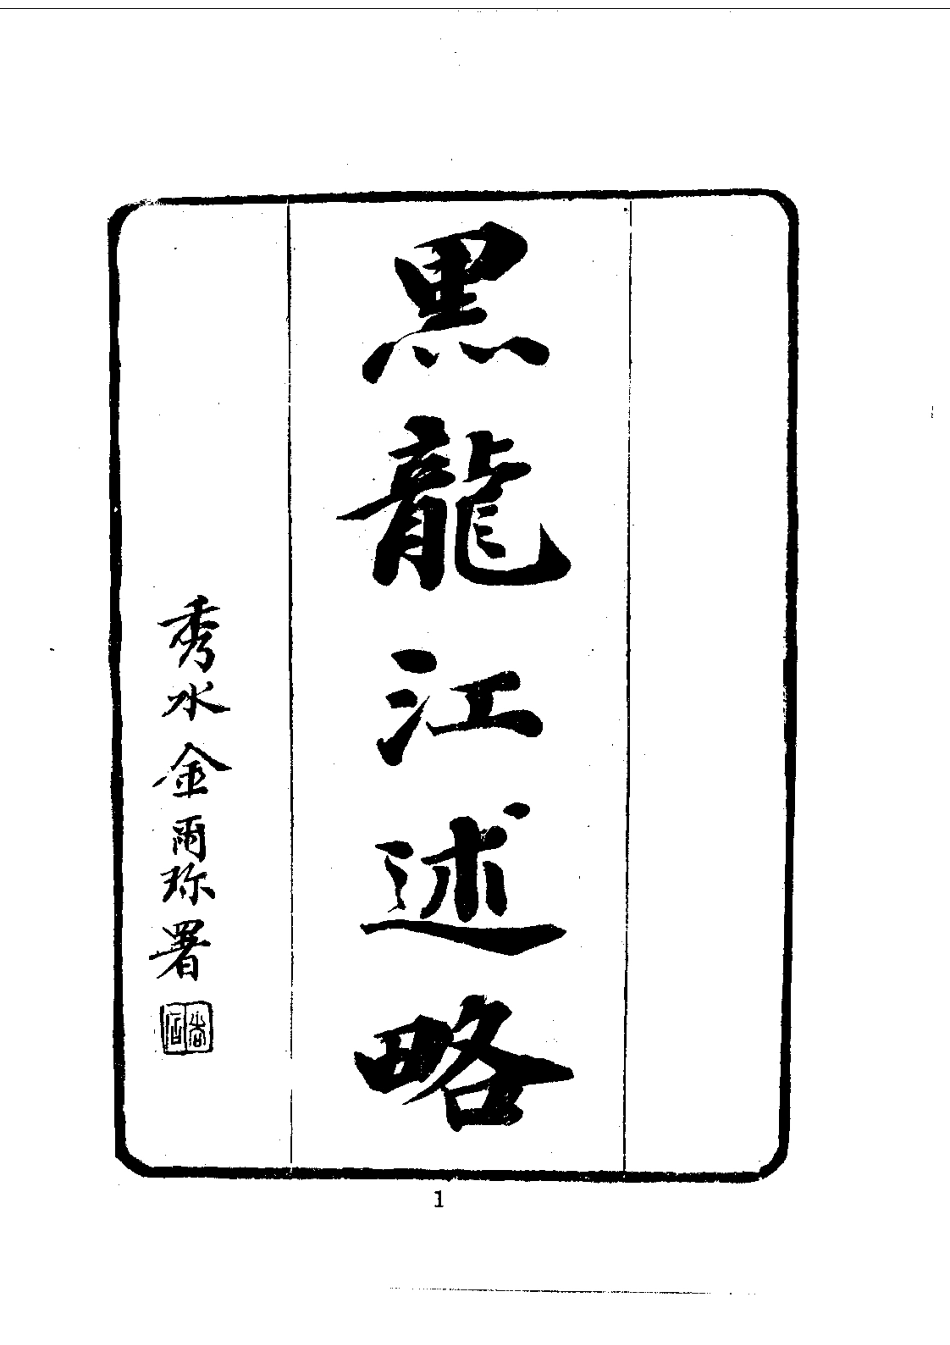 黑龍江述略
秀水金爾珎署
1